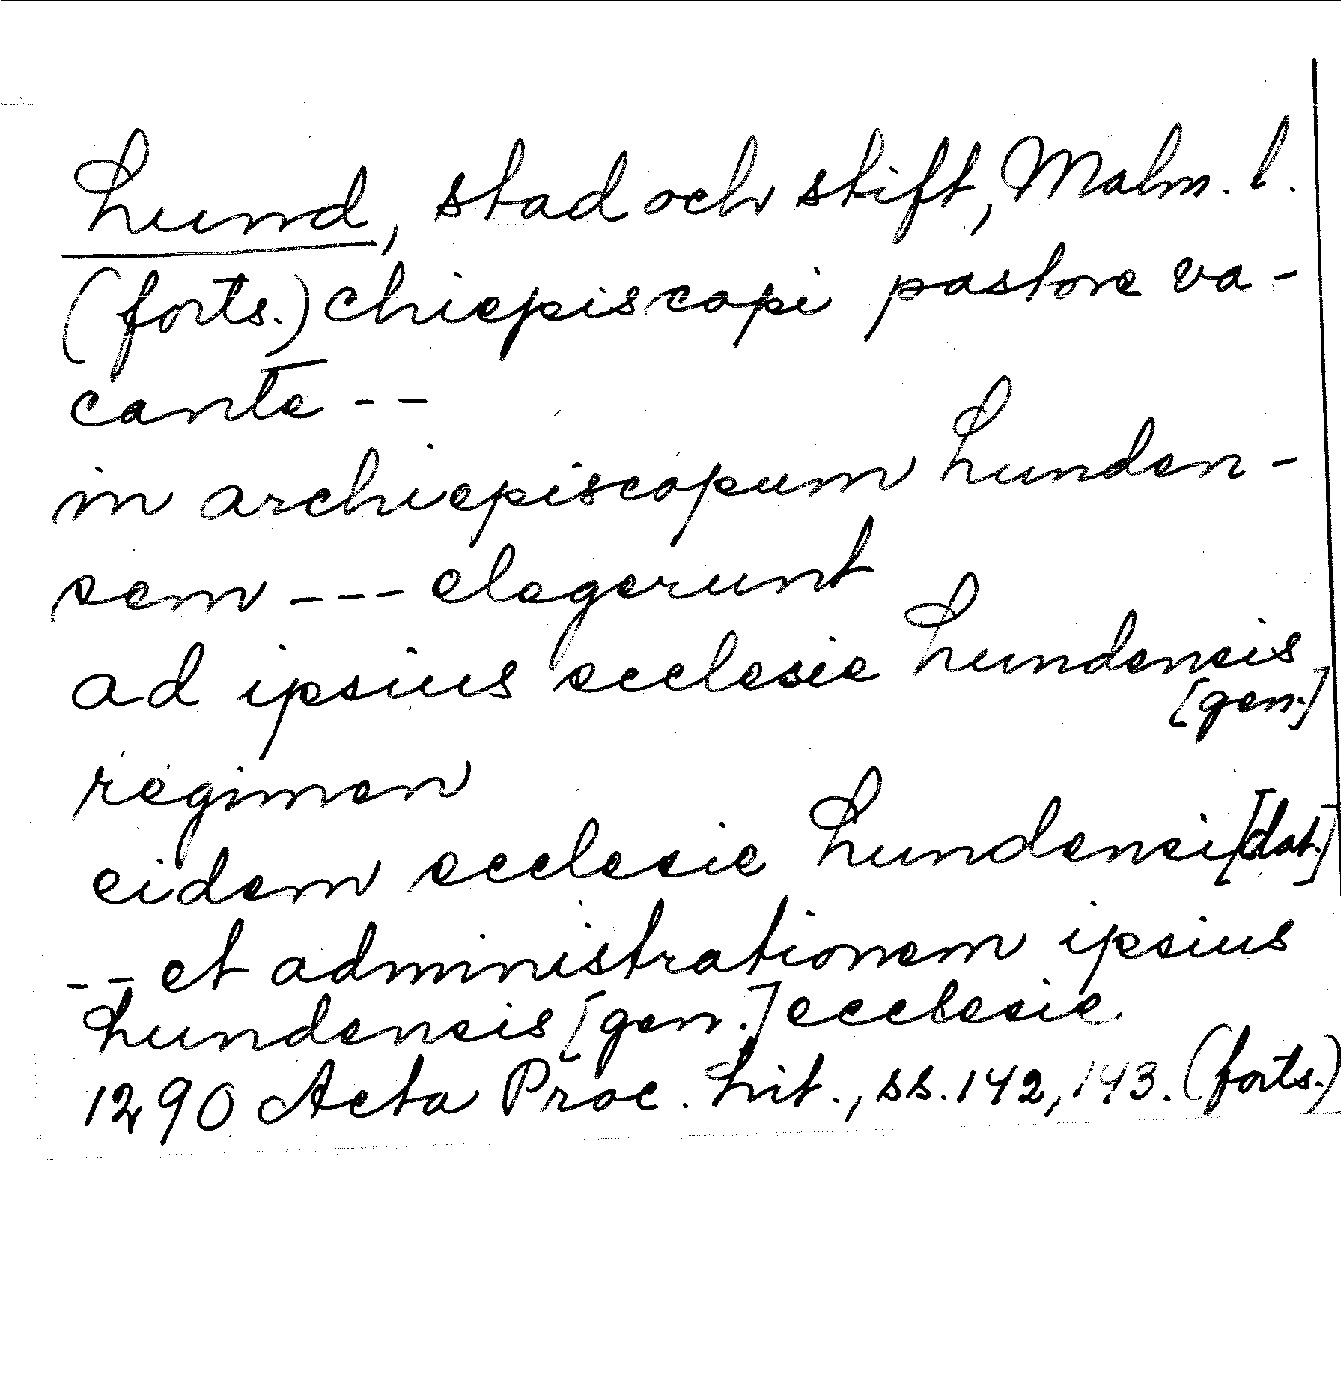 Lund, stad och stift, Malm. l.
(forts.) chiepiscopi pastore va-
cante --
in archiepiscopum Lunden-
sem --- elegerunt
ad ipsius ecclesie Lundensis
[gen.]
regimen
eidem ecclesie Lundensi [dat.]
-- et administrationem ipsius
Lundensis [gen.] ecclesie.
1290 Acta Proc. Lit., ss. 142, 143. (forts.)